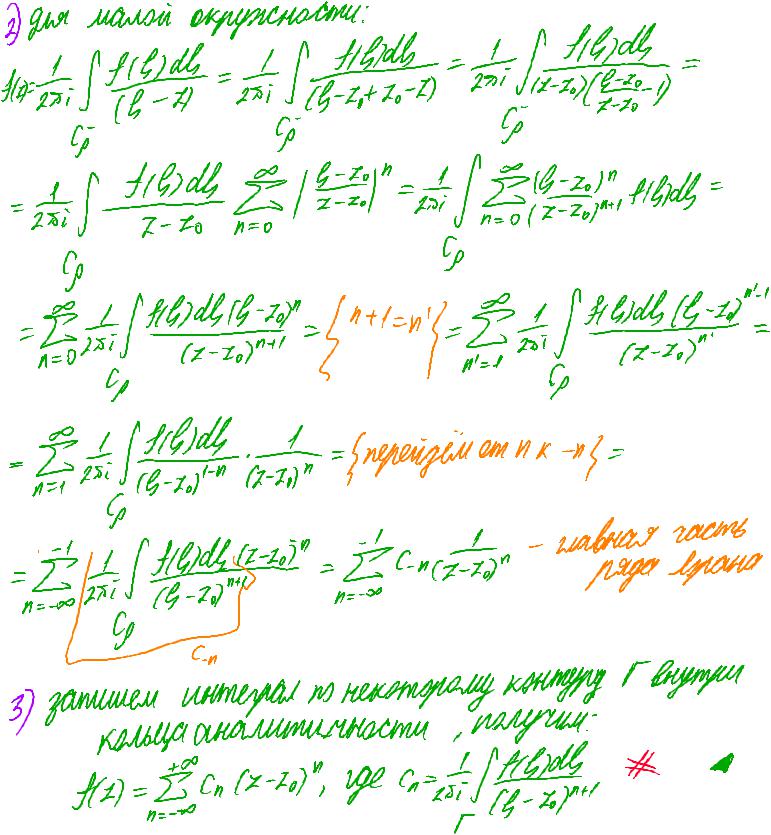 2) Для малой окружности:
f(z)= \frac{1}{2πi} \int_{C_ρ^-} \frac{f(ξ)dξ}{(ξ-z)} = \frac{1}{2πi} \int_{C_ρ^-} \frac{f(ξ)dξ}{(ξ-z_0+z_0-z)} = \frac{1}{2πi} \int_{C_ρ^-} \frac{f(ξ)dξ}{(z-z_0)(\frac{ξ-z_0}{z-z_0}-1)} =
= \frac{1}{2πi} \int_{C_ρ} \frac{f(ξ)dξ}{z-z_0} \sum_{n=0}^{∞} (\frac{ξ-z_0}{z-z_0})^n = \frac{1}{2πi} \int_{C_ρ} \sum_{n=0}^{∞} \frac{(ξ-z_0)^n}{(z-z_0)^{n+1}} f(ξ)dξ =
= \sum_{n=0}^{∞} \frac{1}{2πi} \int_{C_ρ} \frac{f(ξ)dξ(ξ-z_0)^n}{(z-z_0)^{n+1}} = {n+1=n'} = \sum_{n'=1}^{∞} \frac{1}{2πi} \int_{C_ρ} \frac{f(ξ)dξ(ξ-z_0)^{n'-1}}{(z-z_0)^{n'}} =
= \sum_{n=1}^{∞} \frac{1}{2πi} \int_{C_ρ} \frac{f(ξ)dξ}{(ξ-z_0)^{1-n}} · \frac{1}{(z-z_0)^n} = {перейдём от n к -n} =
= \sum_{n=-∞}^{-1} \frac{1}{2πi} \int_{C_ρ} \frac{f(ξ)dξ(z-z_0)^n}{(ξ-z_0)^{n+1}} = \sum_{n=-∞}^{-1} C_{-n} \frac{1}{(z-z_0)^n} - главная часть
ряда Лорана
C_{-n}
3) запишем интеграл по некоторому контуру Г внутри
кольца аналитичности, получим:
f(z) = \sum_{n=-∞}^{+∞} C_n (z-z_0)^n, где C_n = \frac{1}{2πi} \int_Г \frac{f(ξ)dξ}{(ξ-z_0)^{n+1}} #